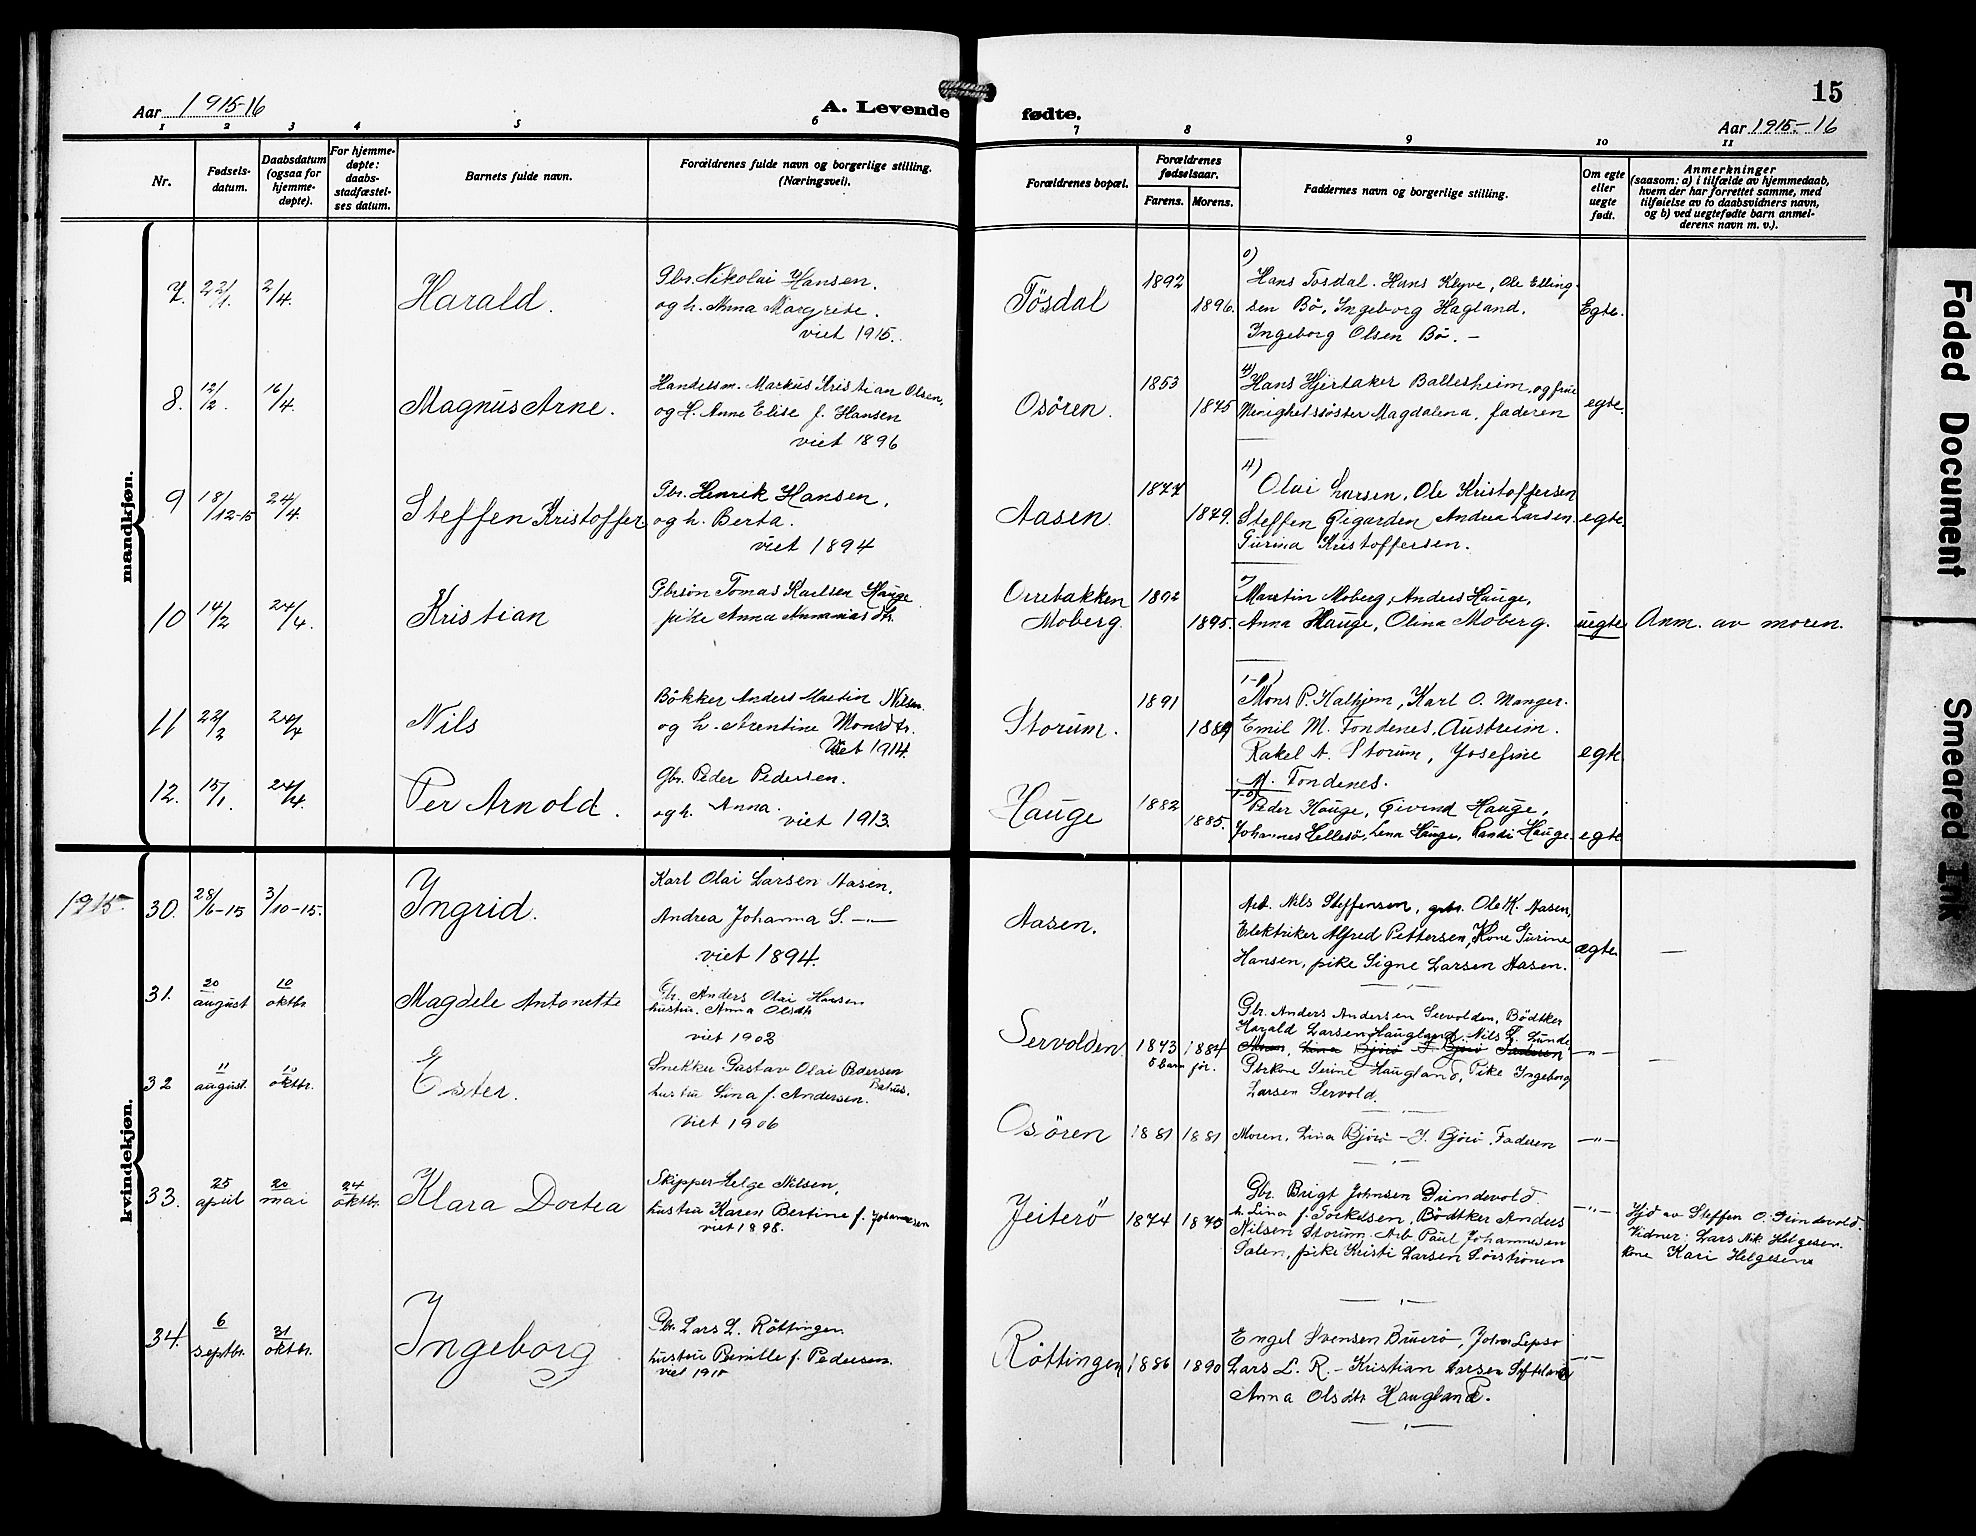 Aar 1915-16
A. Levende
fødte.
15
Aar 1915-16
1 2 3 4 5 6 7 8 9 10 11
Nr.
Fødsels-
datum.
Daabsdatum
(ogsaa for
hjemme-
døpte).
For hjemme-
døpte:
daabs-
stadfæstel-
ses datum.
Barnets fulde navn.
Forældrenes fulde navn og borgerlige stilling.
(Næringsvei).
Forældrenes bopæl.
Forældrenes
fødselsaar.
Farens. Morens.
Faddernes navn og borgerlige stilling.
Om egte
eller
uegte
født.
Anmerkninger
(saasom: a) i tilfælde av hjemmedaab,
hvem der har forrettet samme, med
tilføielse av to daabsvidners navn,
og b) ved uegtefødte barn anmel-
derens navn m. v.).
mandkjøn.
7. 22/1. 2/4. Harald.
Gbr. Nikolai Hansen.
og h. Anna Margrete.
viet 1915.
Tösdal 1892 1896.
Hans Tosdal. Hans Klyve, Ole Elling-
sen Bö, Ingeborg Hagland.
Ingeborg Olsen Bö. -
Egte.
8. 12/2. 16/4. Magnus Arne.
Handelsm. Markus Kristian Olsen,
og h. Anne Elise f. Hansen
viet 1896
Osören. 1853 1875
Hans Hjertaker Ballesheim, og frue
Menighetssöster Magdalena, faderen
egte.
9 18/12-15 24/4. Steffen Kristoffer
Gbr. Henrik Hansen,
og h. Berta.
viet 1894
Aasen. 1877 1879.
Olai Larsen, Ole Kristoffersen
Steffen Andrea Larsen.
Gurina Kristoffersen.
egte.
10 14/2 24/4. Kristian
Gbrsön Tomas Karlsen Hauge
pike Anna Annaniasdtr.
Orrebakken
Moberg. 1892 1895.
Martin Moberg, Anders Hauge,
Anna Hauge, Olina Moberg.
uegte
Anm. av moren.
11 22/2 24/4 Nils
Bökker Anders Martin Nilsen
og h. Arentine Monsdtr.
Viet 1914.
Storum. 1891 1889
Mons P. Hathjem, Karl O. Manger.
Emil M. Tondenes, Austreim.
Rakel A. Storum, Josefine
M. Tondenes.
egte
12. 15/1. 24/4. Per Arnold.
Gbr. Peder Pedersen.
og h. Anna.
viet 1913.
Hauge 1882 1885.
Peder Hauge, Öivind Hauge,
Johannes Hellesö, Lena Hauge, Randi Hauge.
egte
kvindekjøn.
1915. 30. 28/6-15 3/10-15. Ingrid.
Karl Olai Larsen Aasen,
Andrea Johanna S. —"—
viet 1894.
Aasen.
Arb. Nils Steffensen, gbr. Ole K. Aasen,
Elektriker Alfred Pettersen, Kone Gurine
Hansen, pike Signe Larsen Aasen.
ægte. —
31. 20 august 10 oktbr Magdele Antonette
Gbr. Anders Olai Hansen
hustru. Anna Olsdtr
viet 1902
Servolden. 1873 1884
5 barn för.
Gbr. Anders Andersen Servolden, Bödtker
Harald Larsen Haugland, Nils L. Lunde
Gbrkone Serine Haugland, Pike Ingeborg
Larsen Servold.
—"— —
32 11 august. 10 oktbr. Ester.
Snekker Gustav Olai Pedersen
hustru Lina f. Andersen.
Viet 1906
Osören 1881 1881
Moren, Lina Björö - J. Björö, Faderen
—"—
33. 25 april 20 mai 24 oktbr. Klara Dortea
Skipper Helge Nilsen,
hustru Karen Bertine f. Johannesen
viet 1898.
Jeiterö 1874 1875
Gbr. Brigt Johnsen Gundevold
h. Lina f. Torkelsen, Bödtker Anders
Nilsen Storum, Arb. Paul Johannesen
Dalen, pike Kristi Larsen
—"—
Hjd av Steffen O. Gundevold.
Vidner: Lars Nik. Helgesen.
kone Kari Helgesen
34. 6 septbr. 31 oktbr. Ingeborg
Gbr. Lars L. Röttingen
hustru Pernille f. Pedersen.
viet 1910
Röttingen 1886 1890
Engel Svensen Bruerö, John Lepsö
Lars L. R. - Kristian Larsen
Anna Olsdtr Haugland.
—"—
Faded Document
Smeared Ink